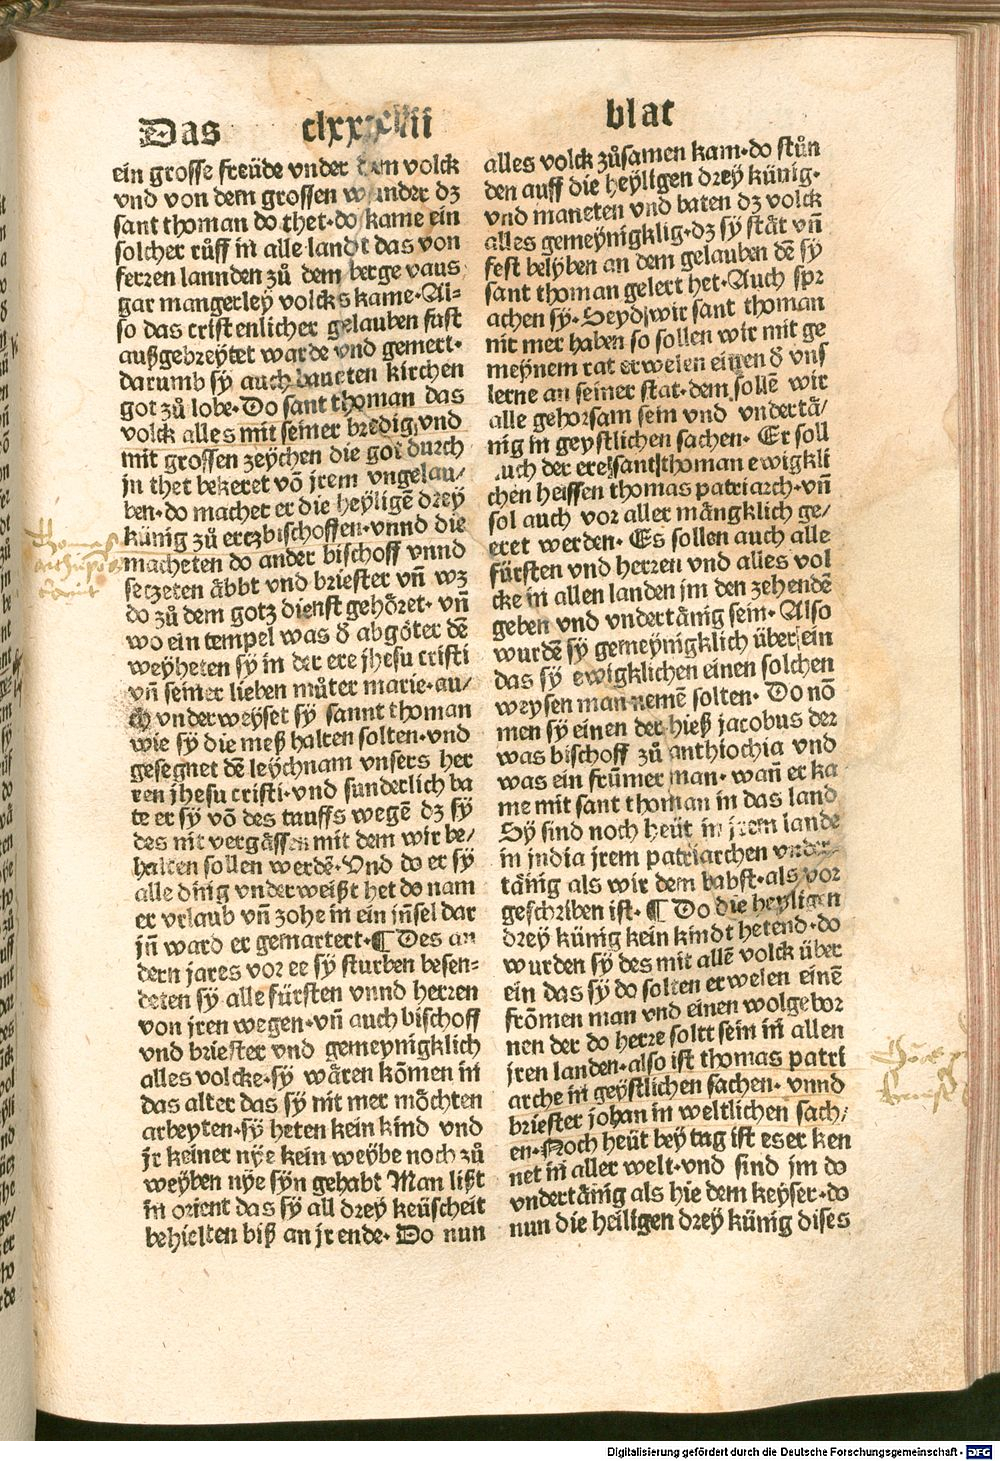 Das clxxxxiii blat
ein grosse freüde vnder dem volck
vnd von dem grossen wunder dz
sant thoman do thet·do kame ein
solcher růff in alle landt das von
ferren lannden zů dem berge vaus
gar mangerleÿ volcks kame·Al⸗
so das cristenlicher gelauben fast
außgebreÿtet warde vnd gemert·
darumb sÿ auch baueten kirchen
got zů lobe·Do sant thoman das
volck alles mit seiner bredig vnd
mit grossen zeÿchen die got durch
jn thet bekeret võ jrem vngelau/
ben·do machet er die heÿligẽ dreÿ
künig zů erczbischoffen·vnnd die
macheten do ander bischoff vnnd
seczeten äbbt vnd briester vñ wz
do zů dem gotz dienst gehöret· vñ
wo ein tempel was d̕ abgöter dẽ
weÿheten sÿ in der ere jhesu cristi
vñ seiner lieben můter marie·au/
ch vnderweÿset sÿ sannt thoman
wie sÿ die meß halten solten·vnd
gesegnet dẽ leÿchnam vnsers her
ren jhesu cristi·vnd sunderlich ba
te er sÿ võ des tauffs wegẽ dz sÿ
des nit vergässen mit dem wir be/
halten sollen werdẽ·Vnd do er sÿ
alle ding vnderweißt het do nam
er vrlaub vñ zohe in ein jñsel dar
jñ ward er gemartert·¶ Des an
dern jares vor ee sÿ sturben besen⸗
deten sÿ alle fürsten vnnd herren
von jren wegen·vñ auch bischoff
vnd briester vnd gemeÿnigklich
alles volcke·sÿ wären kõmen in
das alter das sÿ nit mer möchten
arbeyten·sÿ heten kein kind vnd
jr keiner nÿe kein weÿbe noch zů
weÿben nÿe sÿn gehabt Man lißt
in orient das sÿ all dreÿ keüscheit
behielten biß an jr ende· Do nun
alles volck zůsamen kam·do stůn
den auff die heÿligen dreÿ künig·
vnd maneten vnd baten dz volck
alles gemeÿnigklig·dz sÿ stät vñ
fest belÿben an dem gelauben dẽ sÿ
sant thoman gelert het·Auch spr
achen sÿ·Seyd wir sant thoman
nit mer haben so sollen wir mit ge
meÿnem rat erwelen einen d̕ vns
lerne an seiner stat·dem sollẽ wir
alle gehorsam sein vnd vndertä/
nig in geystlichen sachen· Er soll
auch der ere sant thoman ewigkli
chen heissen thomas patriarch·vñ
sol auch vor aller mängklich ge/
eret werden· Es sollen auch alle
fürsten vnd herren vnd alles vol
cke in allen landen jm den zehendẽ
geben vnd vndertänig sein· Also
wurdẽ sÿ gemeÿnigklich über ein
das sÿ ewigklichen einen solchen
weysen man nemẽ solten· Do nõ
men sÿ einen der hieß jacobus der
was bischoff zů anthiochia vnd
was ein frũmer man· wañ er ka
me mit sant thoman in das land
Sÿ sind noch heüt in jrem lande
in jndia jrem patriarchen vnder⸗
tänig als wir dem babst·als vor
geschriben ist· ¶ Do die heyligen
dreÿ künig kein kindt hetend·do
wurden sÿ des mit allẽ volck über
ein das sÿ do solten erwelen einẽ
frõmen man vnd einen wolgebor
nen der do herre soltt sein in allen
jren landen·also ist thomas patri
arche in geÿstlichen sachen· vnnd
briester johan in weltlichen sach/
en·Noch heüt beÿ tag ist es er ken
net in aller welt·vnd sind jm do
vndertänig als hie dem keÿser·do
nun die heiligen dreÿ künig dises
Digitalisierung gefördert durch die Deutsche Forschungsgemeinschaft - DFG